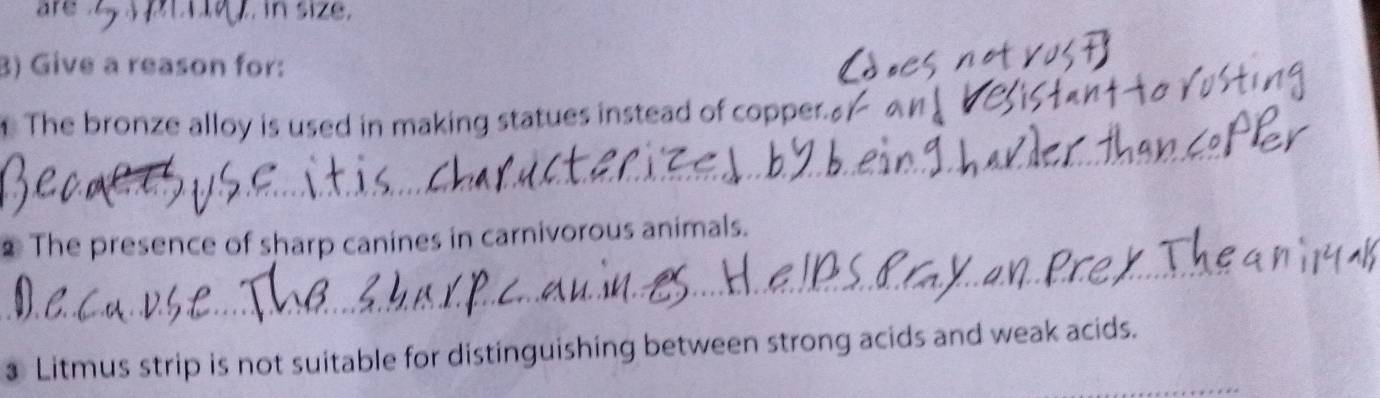 are similar in size.
3) Give a reason for:
(does not rost)
1 The bronze alloy is used in making statues instead of copper. or and resistant to rosting
Because it is characterized by being harder than copper
2 The presence of sharp canines in carnivorous animals.
Because The sharp canines Helps Pray on Prey The animals
3 Litmus strip is not suitable for distinguishing between strong acids and weak acids.